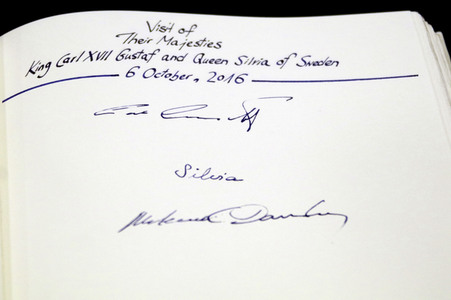 Visit of
Their Majesties
King Carl XVII Gustaf and Queen Silvia of Sweden
6 October, 2016
Silvia